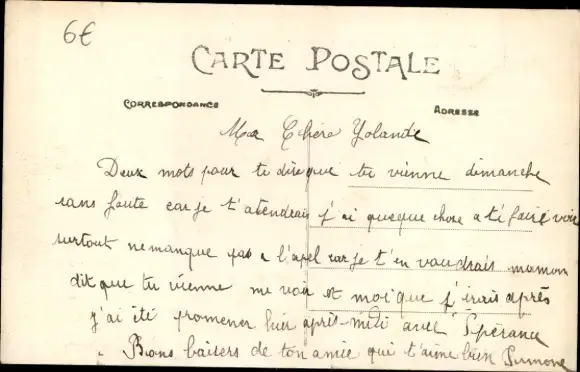 6€
CARTE POSTALE
CORRESPONDANCE
ADRESSE
Ma Chère Yolande
Deux mots pour te dire que tu vienne dimanche
sans faute car je t'atendrais j'ai queque chose a te faire voir
surtout ne manque pas a l'apel car je t'en vaudrais maman
dit que tu vienne me voir et moi que j'irais après
j'ai été promener hier après-midi avec Espérance
Bons baisers de ton amie qui t'aime bien Simone